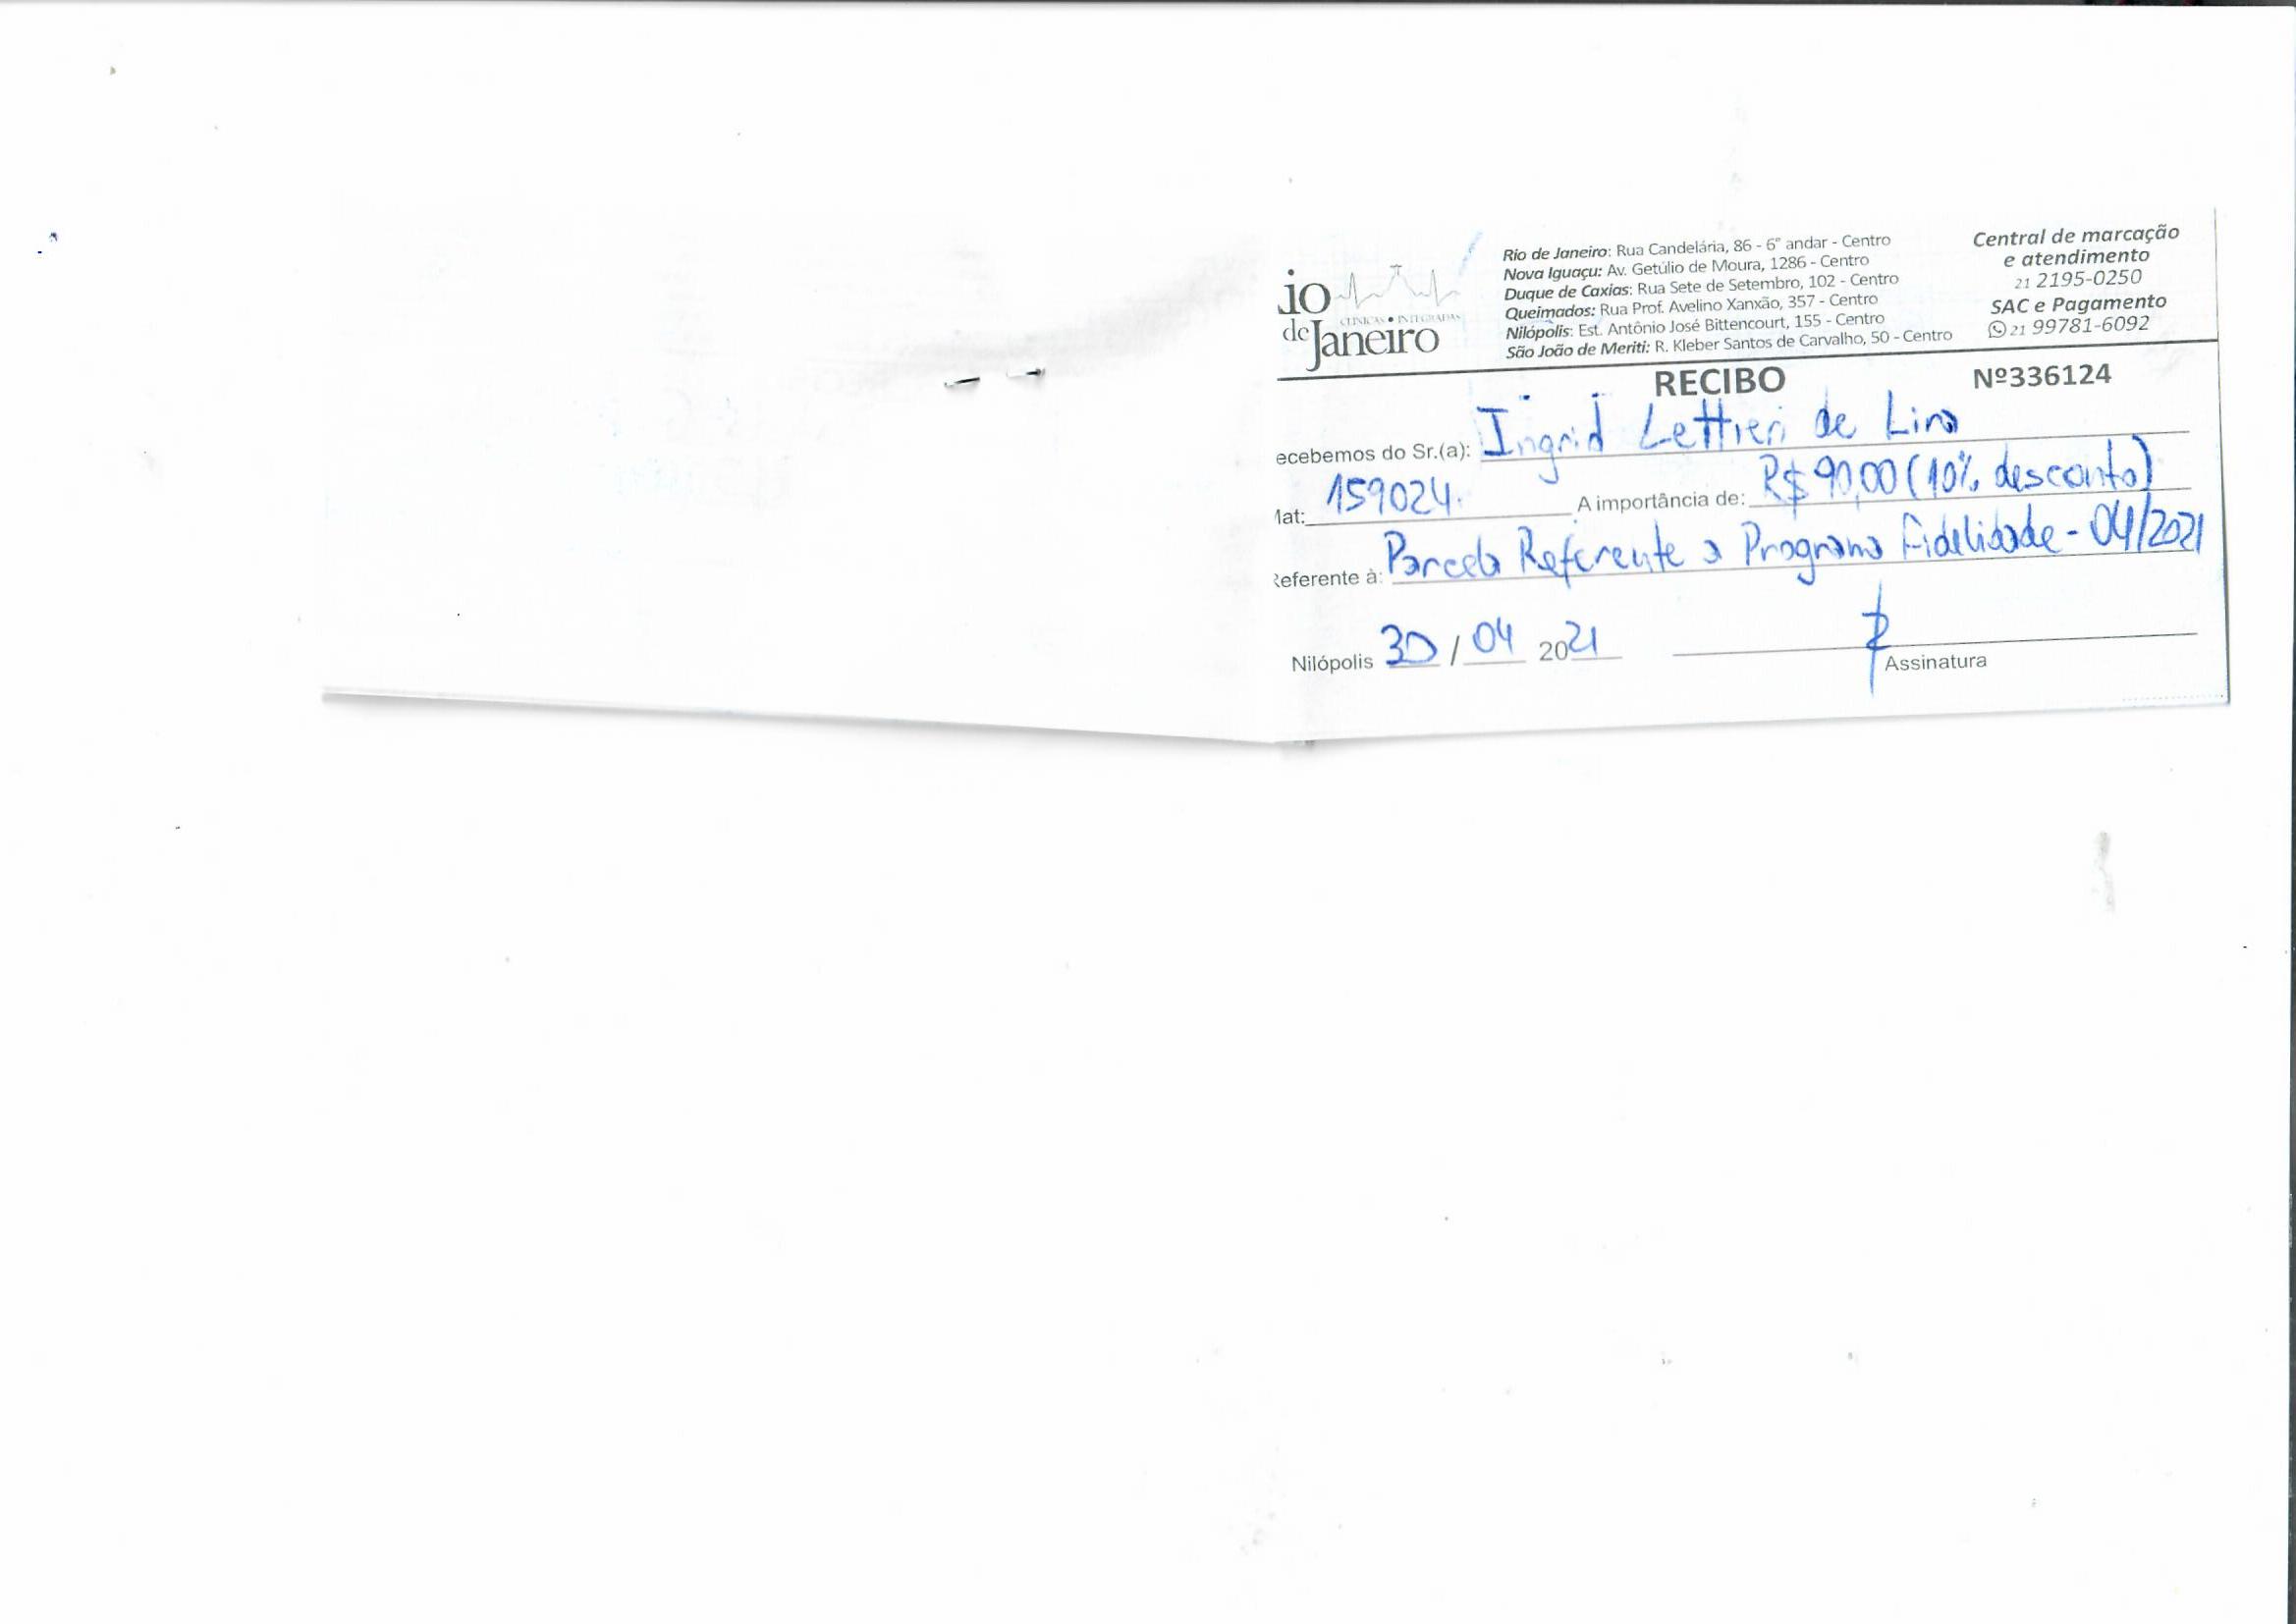 io
CLINICAS • INTEGRADAS
de Janeiro
Rio de Janeiro: Rua Candelária, 86 - 6° andar - Centro
Nova Iguaçu: Av. Getúlio de Moura, 1286 - Centro
Duque de Caxias: Rua Sete de Setembro, 102 - Centro
Queimados: Rua Prof. Avelino Xanxão, 357 - Centro
Nilópolis: Est. Antônio José Bittencourt, 155 - Centro
São João de Meriti: R. Kleber Santos de Carvalho, 50 - Centro
Central de marcação
e atendimento
21 2195-0250
SAC e Pagamento
21 99781-6092
RECIBO Nº336124
ecebemos do Sr.(a): Ingrid Lettieri de Lira
Mat: 159024. A importância de: R$ 90,00 (10% desconto)
Referente à: Parcela Referente a Programa Fidelidade - 04/2021
Nilópolis 30 / 04 2021
Assinatura